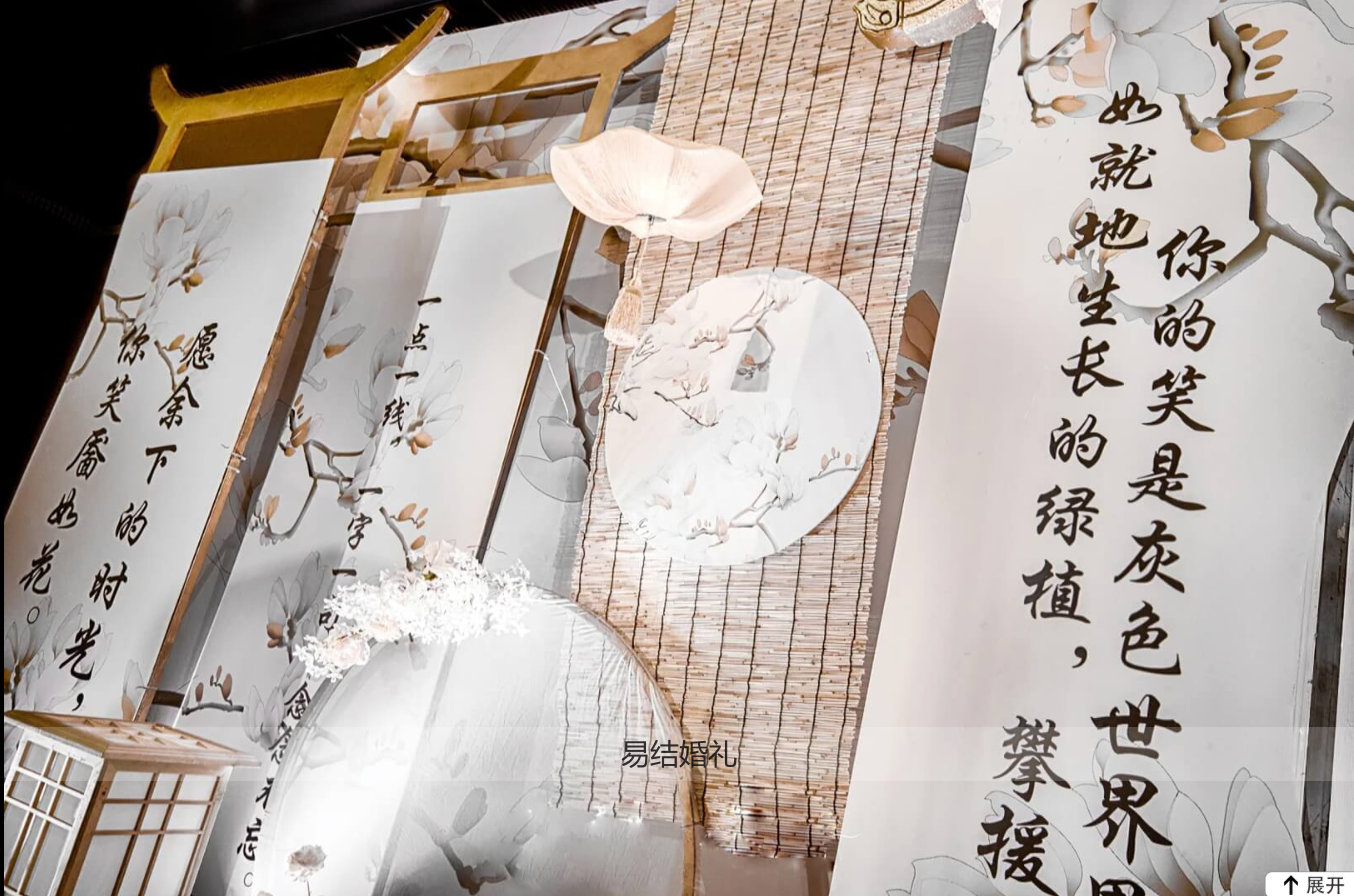 你的笑是灰色世界
如就地生长的绿植，攀援
一点一线。一字一
念念
忘。
愿余下的时光，
你笑靥如花。
易结婚礼
展开